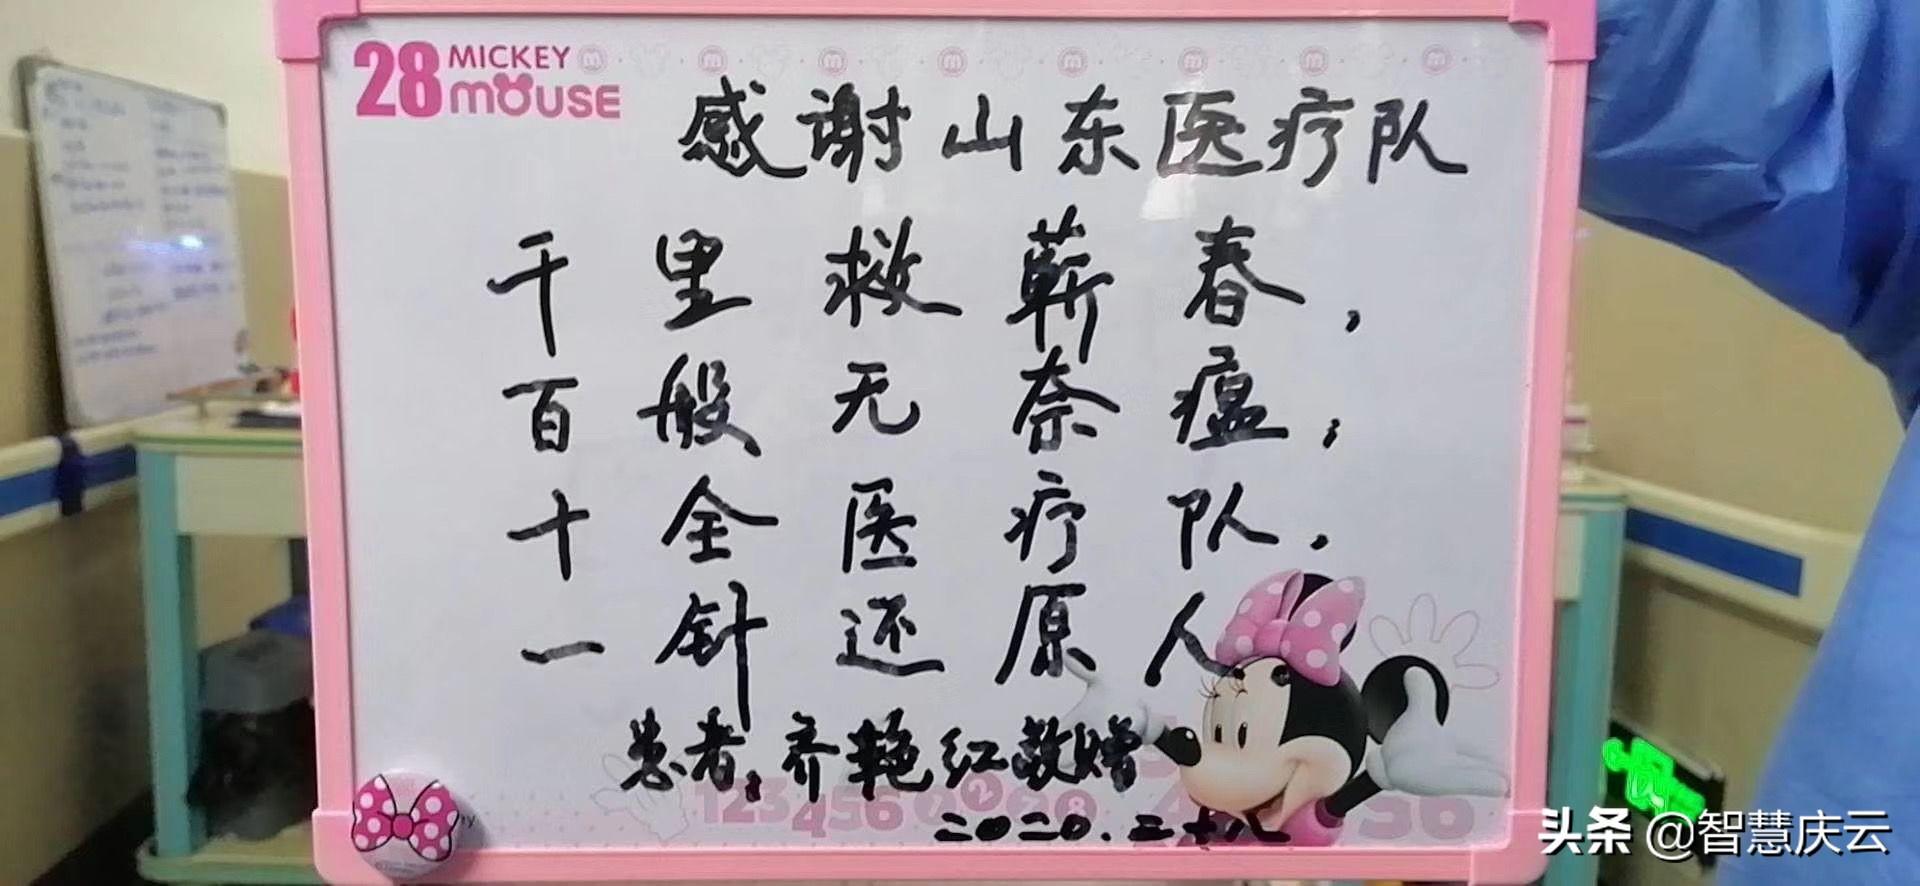 28 MICKEY MOUSE
感谢山东医疗队
千里救蕲春，
百般无奈瘟；
十全医疗队，
一针还原人
患者，齐艳红敬赠
123456
二0二0.二十八
头条 @智慧庆云